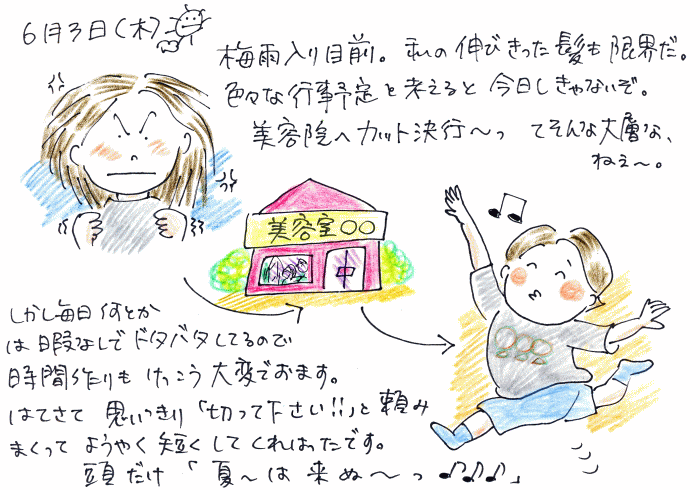 6月3日(木)
梅雨入り目前。私の伸びきった髪も限界だ。
色々な行事予定を考えると今日しきゃないぞ。
美容院へカット決行〜っ てそんな大層な、
ねぇ〜。
美容室○○
しかし毎日何とか
は暇なしでドタバタしてるので
時間作りもけっこう大変でおます。
はてさて 思いっきり「切って下さい!!」と頼み
まくって ようやく短くしてくれはったです。
頭だけ「夏〜は来ぬ〜っ♪♪♪」